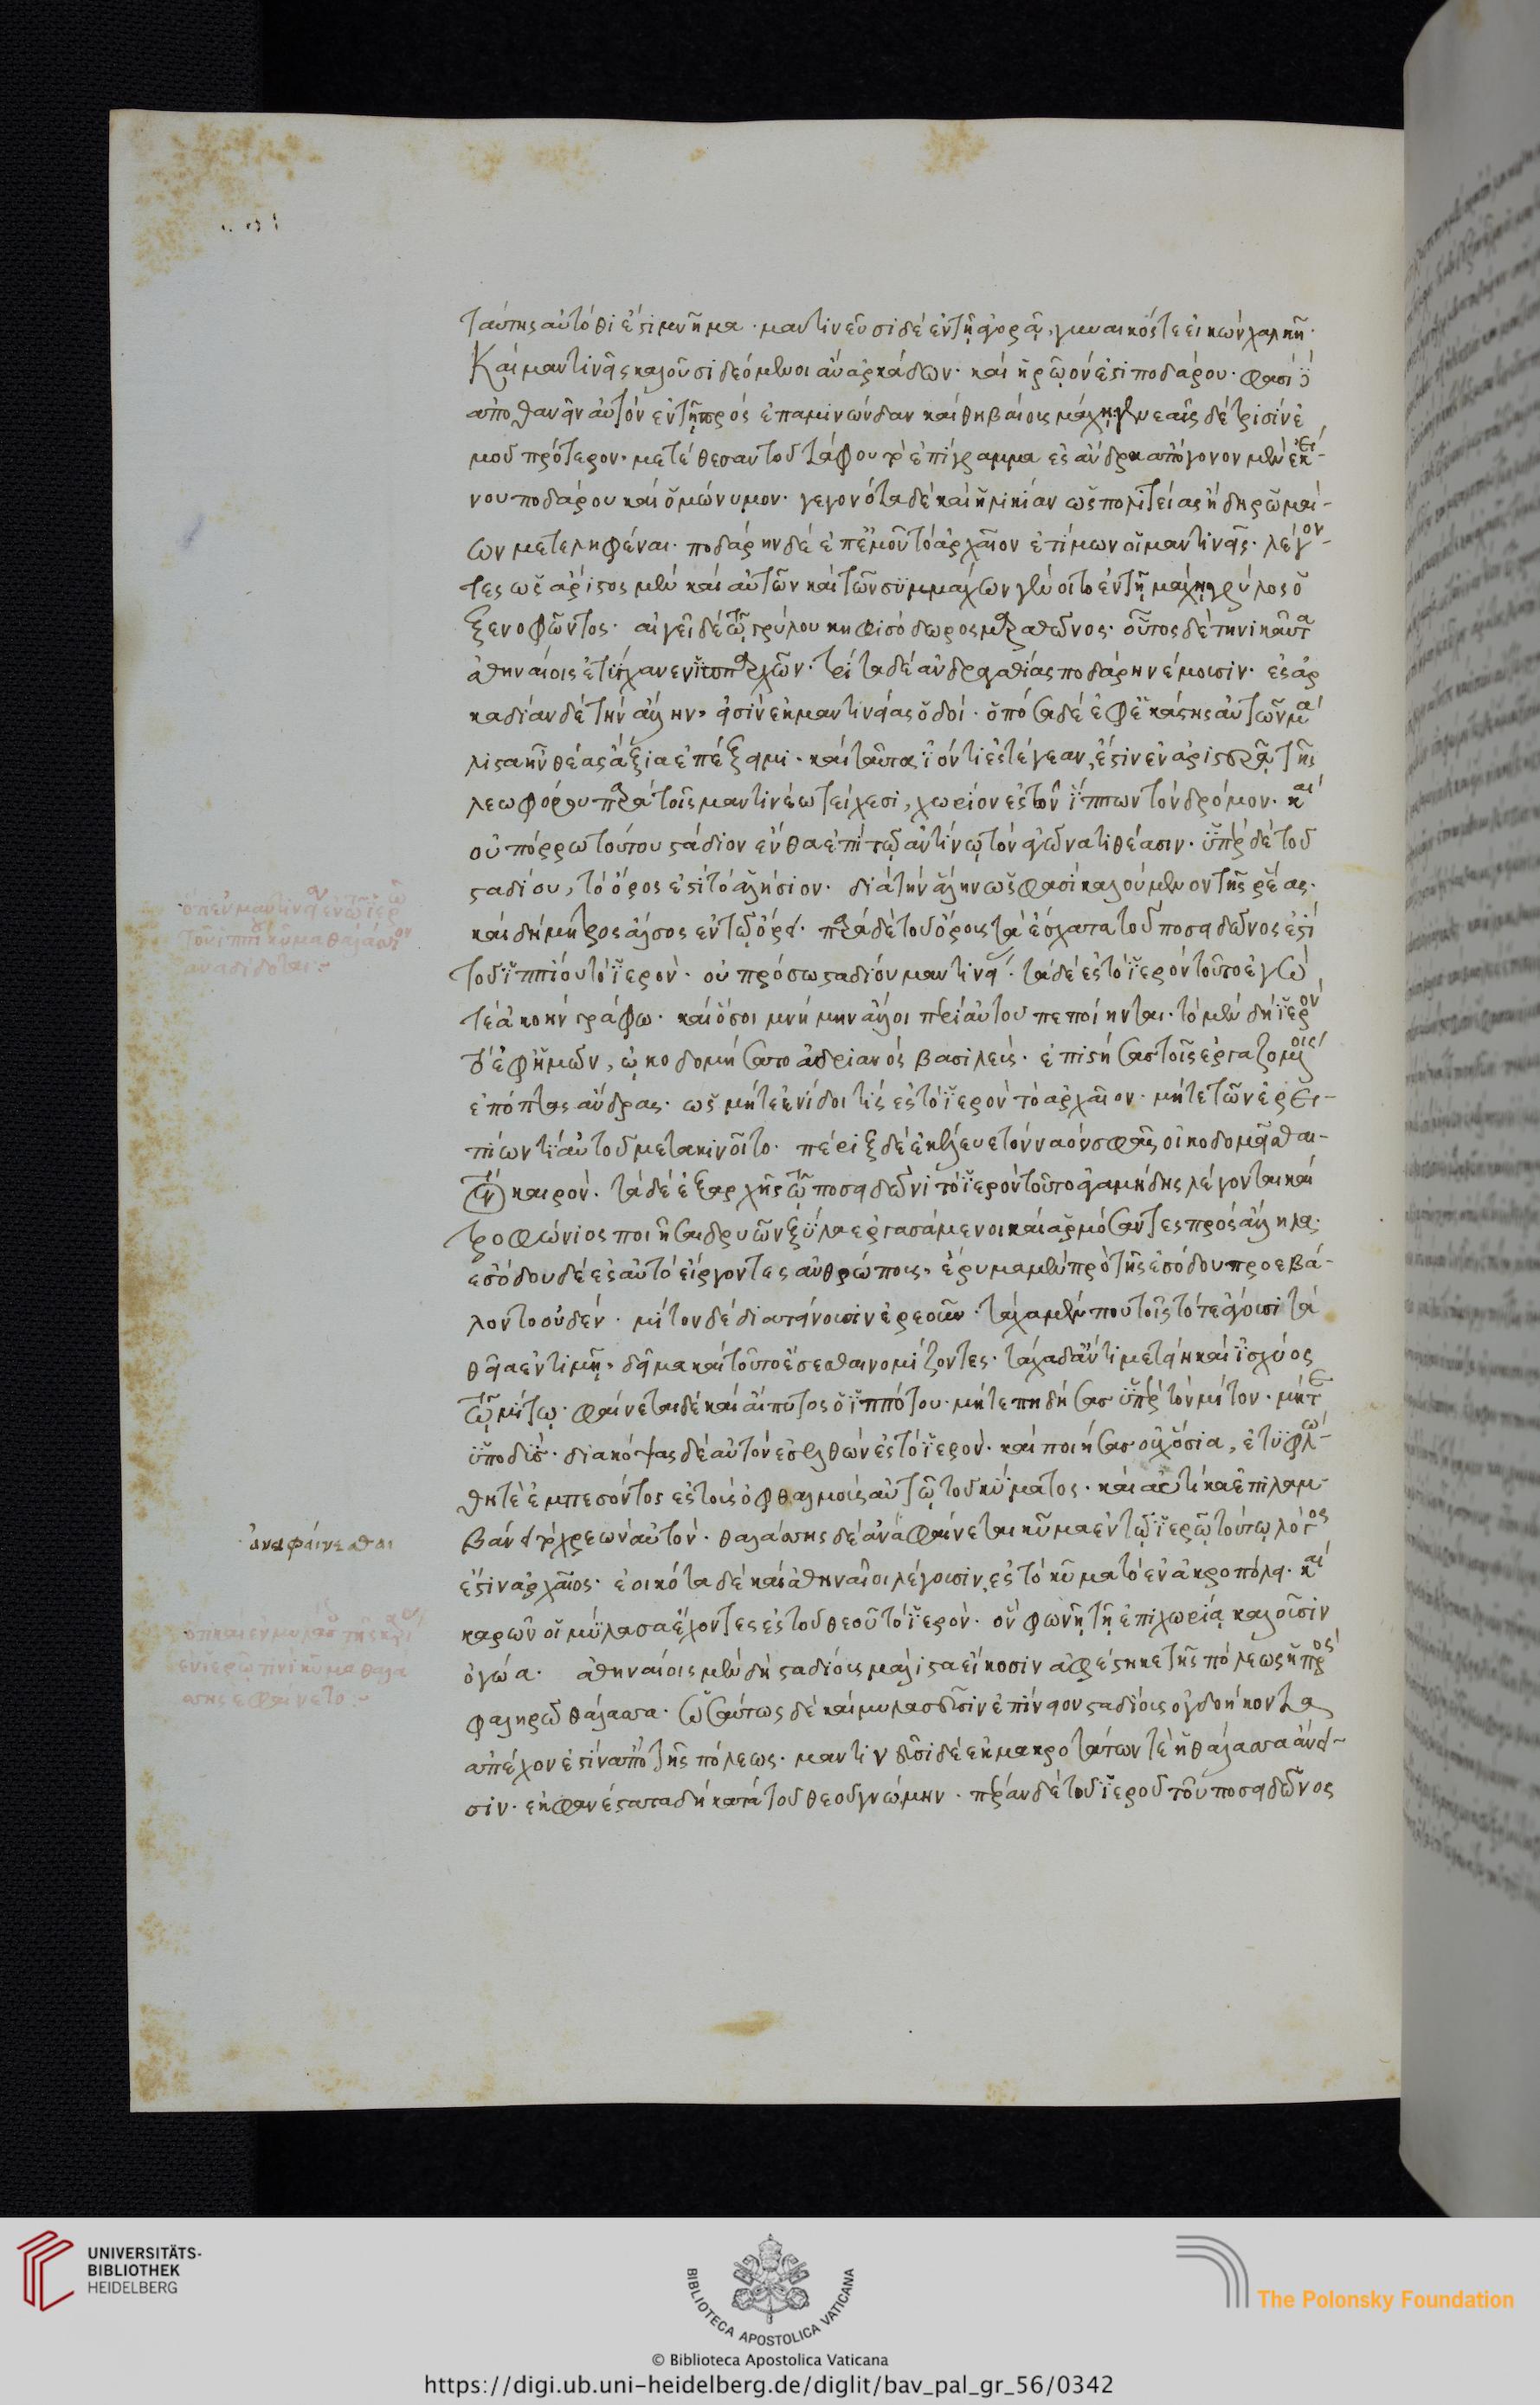 ταύτης αὐτόθι ἐστὶ μνῆμα · μαντινεῦσι δὲ ἐν τῆ ἀγορᾷ, γυναικός τε εἰκὼν χαλκῆ ·
Καὶ μαντινεῖς καλοῦσι δεομένοι ἀν ἀρκάδων · καὶ ἡρῷόν ἐστι ποδάρου · φασὶ δ
ἀποθανεῖν αὐτὸν ἐν τῇ πρὸς ἐπαμινώνδαν καὶ θηβαίοις μάχῃ γενεαῖς δὲ τρισὶν ἐ
μοῦ πρότερον · μετέθεσαν τοῦ τάφου τὸ ἐπίγραμμα ἐς ἄνδρα ἀπόγονον μὲν ἐκεί-
νου ποδάρου καὶ ὁμώνυμον · γεγονότα δὲ καὶ ἡλικίαν ὡς πολιτείας ἤδη ῥωμαί-
ων μετειληφέναι · ποδάρην δὲ ἐπ' ἐμοῦ τὸ ἀρχαῖον ἐτίμων οἱ μαντινεῖς · λέγον-
τες ὡς ἄριστος μὲν καὶ αὐτῶν καὶ τῶν συμμάχων γένοιτο ἐν τῇ μάχῃ γρύλος ὁ
ξενοφῶντος · ἐπὶ δὲ τῷ γρύλου κηφισόδωρος μαραθῶνος · οὗτος δὲ τηνικαῦτα
ἀθηναίοις ἐτύγχανεν ἱππαρχῶν · τρίτα δὲ ἀνδραγαθίας ποδάρην νέμουσιν · ἐς ἀρ
καδίαν δὲ τὴν ἄλλην, εἰσὶν ἐκ μαντινείας ὁδοί · ὁπόσα δὲ ἐφ' ἑκάστης αὐτῶν μά
λιστα ἦν θέας ἄξια ἐπέξειμι · καὶ ταῦτα ἰόντι ἐς τέγεαν, ἔστιν ἐν ἀριστερᾷ τῆς
λεωφόρου παρὰ τοῖς μαντινέων τείχεσι, χωρίον ἐς τῶν ἵππων τὸν δρόμον · καὶ
οὐ πόρρω τούτου στάδιον ἔνθα ἐπὶ τῷ ἀντίνῳ τὸν ἀγῶνα τιθέασιν · ὑπὲρ δὲ τοῦ
σταδίου, τὸ ὄρος ἐστὶ τὸ ἀλήσιον · διὰ τὴν ἄλην ὥς φασι καλούμενον τῆς ῥέας ·
καὶ δήμητρος ἄλσος ἐν τῷ ὄρει · παρὰ δὲ τοῦ ὄρους τὰ ἔσχατα τοῦ ποσειδῶνος ἐστὶ
τοῦ ἱππίου τὸ ἱερόν · οὐ πρόσω σταδίου μαντινεί · τὰ δὲ ἐς τὸ ἱερὸν τοῦτο ἐγώ
τε ἀκοὴν γράφω · καὶ ὅσοι μνήμην ἄλλοι περὶ αὐτοῦ πεποίηνται · τὸ μὲν δὴ ἱερὸν
τὸ ἐφ' ἡμῶν, ᾠκοδομήσατο ἀδριανὸς βασιλεύς · ἐπιστήσας τοῖς ἐργαζομένοις
ἐπόπτας ἄνδρας · ὡς μήτε ἐνίδοι τίς ἐς τὸ ἱερὸν τὸ ἀρχαῖον · μήτε τῶν ἐρει-
πίων τι αὐτοῦ μετακινοῖτο · πέριξ δὲ ἐκέλευε τὸν ναὸν σφᾶς οἰκοδομεῖσθαι
τὸν καιρόν · τὰ δὲ ἐξαρχῆς τῷ ποσειδῶνι τὸ ἱερὸν τοῦτο ἀγαμήδης λέγονται καὶ
τροφώνιος ποιῆσαι δρυῶν ξύλα ἐργασάμενοι καὶ ἁρμόσαντες πρὸς ἄλληλα ·
ἐσόδου δὲ ἐς αὐτὸ εἴργοντες ἀνθρώπους, ἔρυμα μὲν πρὸ τῆς ἐσόδου προεβά-
λοντο οὐδέν · μίτον δὲ διατείνουσιν ἐρεοῦν · τάχα μέν που τοῖς τότε ἄγουσι τὰ
θεῖα ἐν τιμῇ, δεῖμα καὶ τοῦτο ἔσεσθαι νομίζοντες · τάχα δ' ἄν τι μετείη καὶ ἰσχύος
τῷ μίτῳ · φαίνεται δὲ καὶ αἴπυτος ὁ ἱππότου · μήτε πηδήσας ὑπὲρ τὸν μίτον · μήτε
ὑποδύς · διακόψας δὲ αὐτὸν ἐσελθὼν ἐς τὸ ἱερόν · καὶ ποιήσας οὐχ ὅσια, ἐτυφλώ-
θη τὲ ἐμπεσόντος ἐς τοὺς ὀφθαλμοὺς αὐτῷ τοῦ κύματος · καὶ αὐτίκα ἐπιλαμ-
βάνει τὸ χρεὼν αὐτόν · θαλάσσης δὲ ἀναφαίνεται κῦμα ἐν τῷ ἱερῷ τούτῳ λόγος
ἐστὶν ἀρχαῖος · ἐοικότα δὲ καὶ ἀθηναῖοι λέγουσιν, ἐς τὸ κῦμα τὸ ἐν ἀκροπόλει · καὶ
καρῶν οἱ μύλασα ἔχοντες ἐς τοῦ θεοῦ τὸ ἱερόν · ὃν φωνῇ τῇ ἐπιχωρίᾳ καλοῦσιν
ὀγώα · ἀθηναίοις μὲν δὴ σταδίους μάλιστα εἴκοσιν ἀφέστηκε τῆς πόλεως ἡ πρὸς
φαληρῷ θάλασσα · ὡσαύτως δὲ καὶ μυλασσεῦσιν ἐπίνειον σταδίους ὀγδοήκοντα
ἀπέχον ἐστὶν ἀπὸ τῆς πόλεως · μαντινεῦσι δὲ ἐκ μακροτάτων τὲ ἡ θάλασσα ἄνει-
σιν · ἐκφανέστατα δὴ κατὰ τοῦ θεοῦ γνώμην · πέραν δὲ τοῦ ἱεροῦ τοῦ ποσειδῶνος
ἀναφαίνεσθαι
UNIVERSITÄTS-
BIBLIOTHEK
HEIDELBERG
BIBLIOTECA APOSTOLICA VATICANA
The Polonsky Foundation
© Biblioteca Apostolica Vaticana
https://digi.ub.uni-heidelberg.de/diglit/bav_pal_gr_56/0342